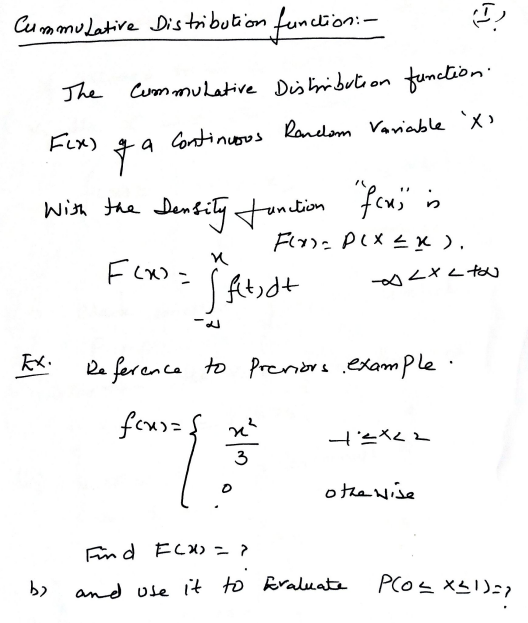 Cummulative Distribution function:- (I)
The Cummulative Distribution function.
F(x) of a Continuous Random Variable 'X'
With the Density function "f(x)" is
F(x) = P(X ≤ x).
F(x) = ∫_{-∞}^{x} f(t) dt -∞ < x < +∞
Ex. Reference to Previors example.
f(x) = { x²/3 -1 ≤ x < 2
0 otherwise
Find F(x) = ?
b) and use it to Evaluate P(0 ≤ X ≤ 1) = ?